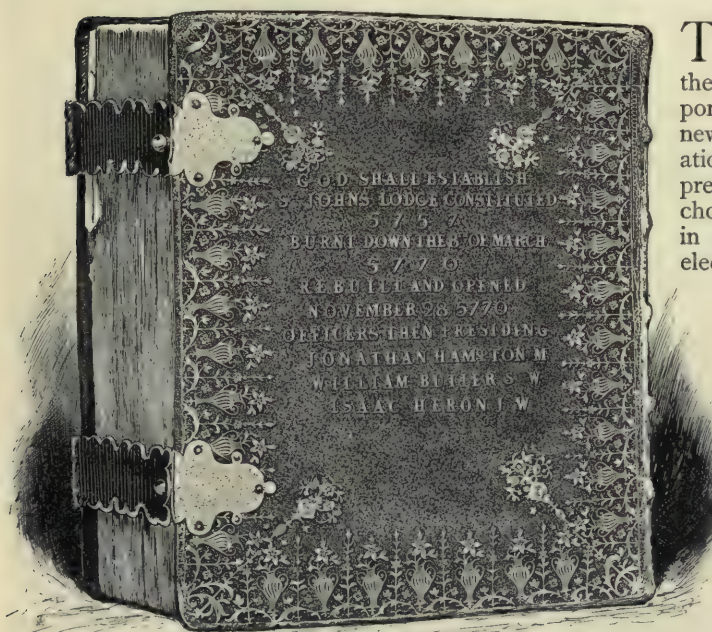 GOD SHALL ESTABLISH
S. JOHNS LODGE CONSTITUTED
5757
BURNT DOWN THE 8 OF MARCH
5770
REBUILT AND OPENED
NOVEMBER 28 5770
OFFICERS THEN PRESIDING
JONATHAN HAMPTON M
WILLIAM BUTLER S W
ISAAC HERON J W
T
the
por
new
atio
pre
cho
in
elec